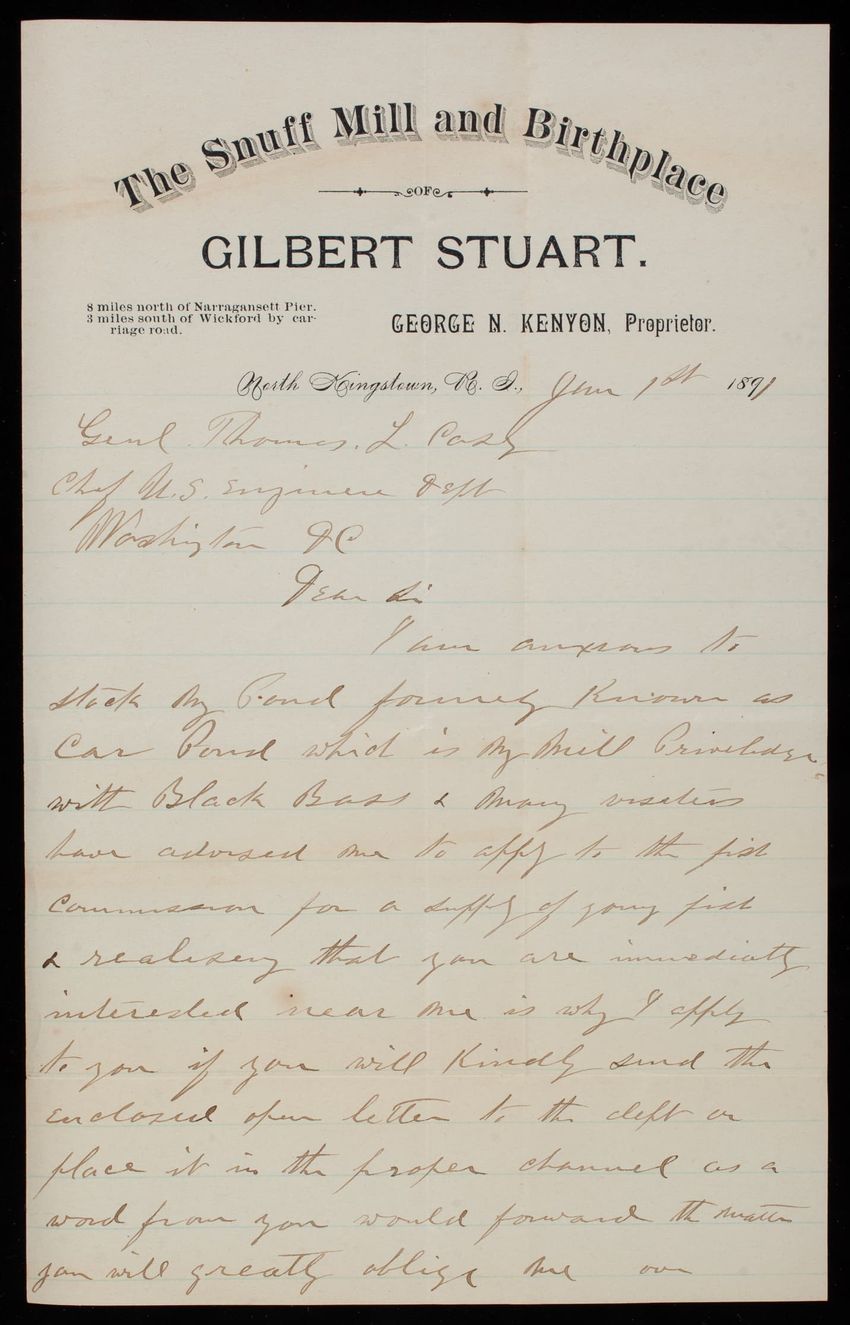 The Snuff Mill and Birthplace
OF
GILBERT STUART.
8 miles north of Narragansett Pier.
3 miles south of Wickford by car-
riage road.
GEORGE N. KENYON, Proprietor.
North Kingstown, R. I., Jan 1st 1891
Genl. Thomas. L. Casey
Chef U.S. Engineer Dept
Washington DC
Dear Sir
I am anxious to
stock my Pond formerly Known as
Car Pond which is my Mill Priveledge
with Black Bass & many visiters
have advised me to apply to the fish
Commission for a supply of young fish
& realiseng that you are immediatly
interested near me is why I apply
to you if you will Kindly send the
enclosed open letter to the dept or
place it in the proper channel as a
word from you would forward the matter
you will greatly oblige me over